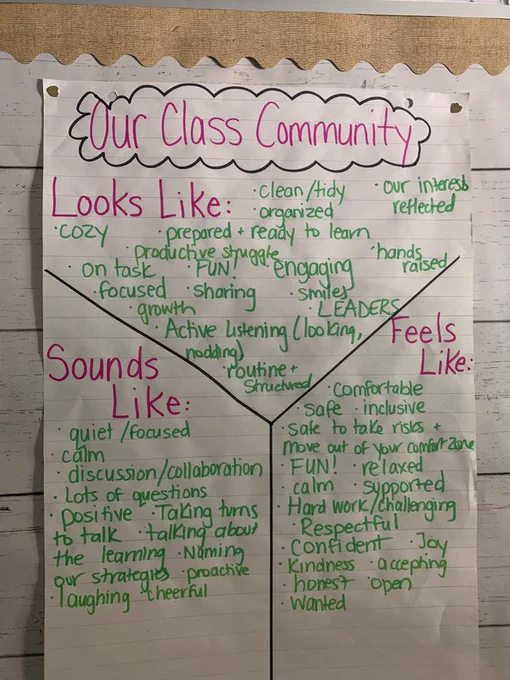 Our Class Community
Looks Like:
· clean/tidy
· organized
· our interests
reflected
· cozy
· prepared + ready to learn
· productive struggle
· hands
raised
· on task
· FUN!
· engaging
· focused
· sharing
· smiles
· growth
· LEADERS
· Active listening (looking,
nodding)
· routine +
structured
Sounds
Like:
· quiet/focused
· calm
· discussion/collaboration
· Lots of questions
· positive · Taking turns
to talk · talking about
the learning · Naming
our strategies · proactive
· laughing · cheerful
Feels
Like:
· Comfortable
· safe · inclusive
· safe to take risks +
move out of your comfort zone
· FUN! · relaxed
· calm · supported
· Hard work/challenging
· Respectful
· confident · Joy
· Kindness · accepting
· honest · open
· Wanted